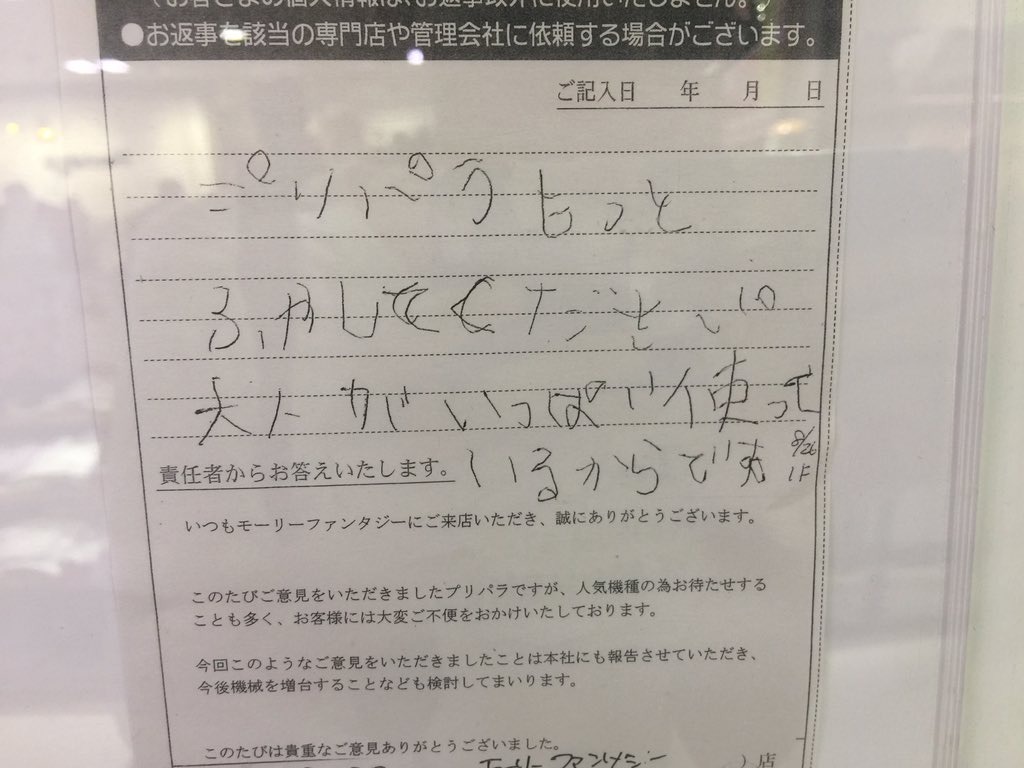 ●お返事を該当の専門店や管理会社に依頼する場合がございます。
ご記入日 年 月 日
プリパラもっと
ふやしてください。
大人がいっぱい使って
いるからです
9/26
1F
責任者からお答えいたします。
いつもモーリーファンタジーにご来店いただき、誠にありがとうございます。
このたびご意見をいただきましたプリパラですが、人気機種の為お待たせする
ことも多く、お客様には大変ご不便をおかけいたしております。
今回このようなご意見をいただきましたことは本社にも報告させていただき、
今後機械を増台することなども検討してまいります。
このたびは貴重なご意見ありがとうございました。
モーリーファンタジー ）店